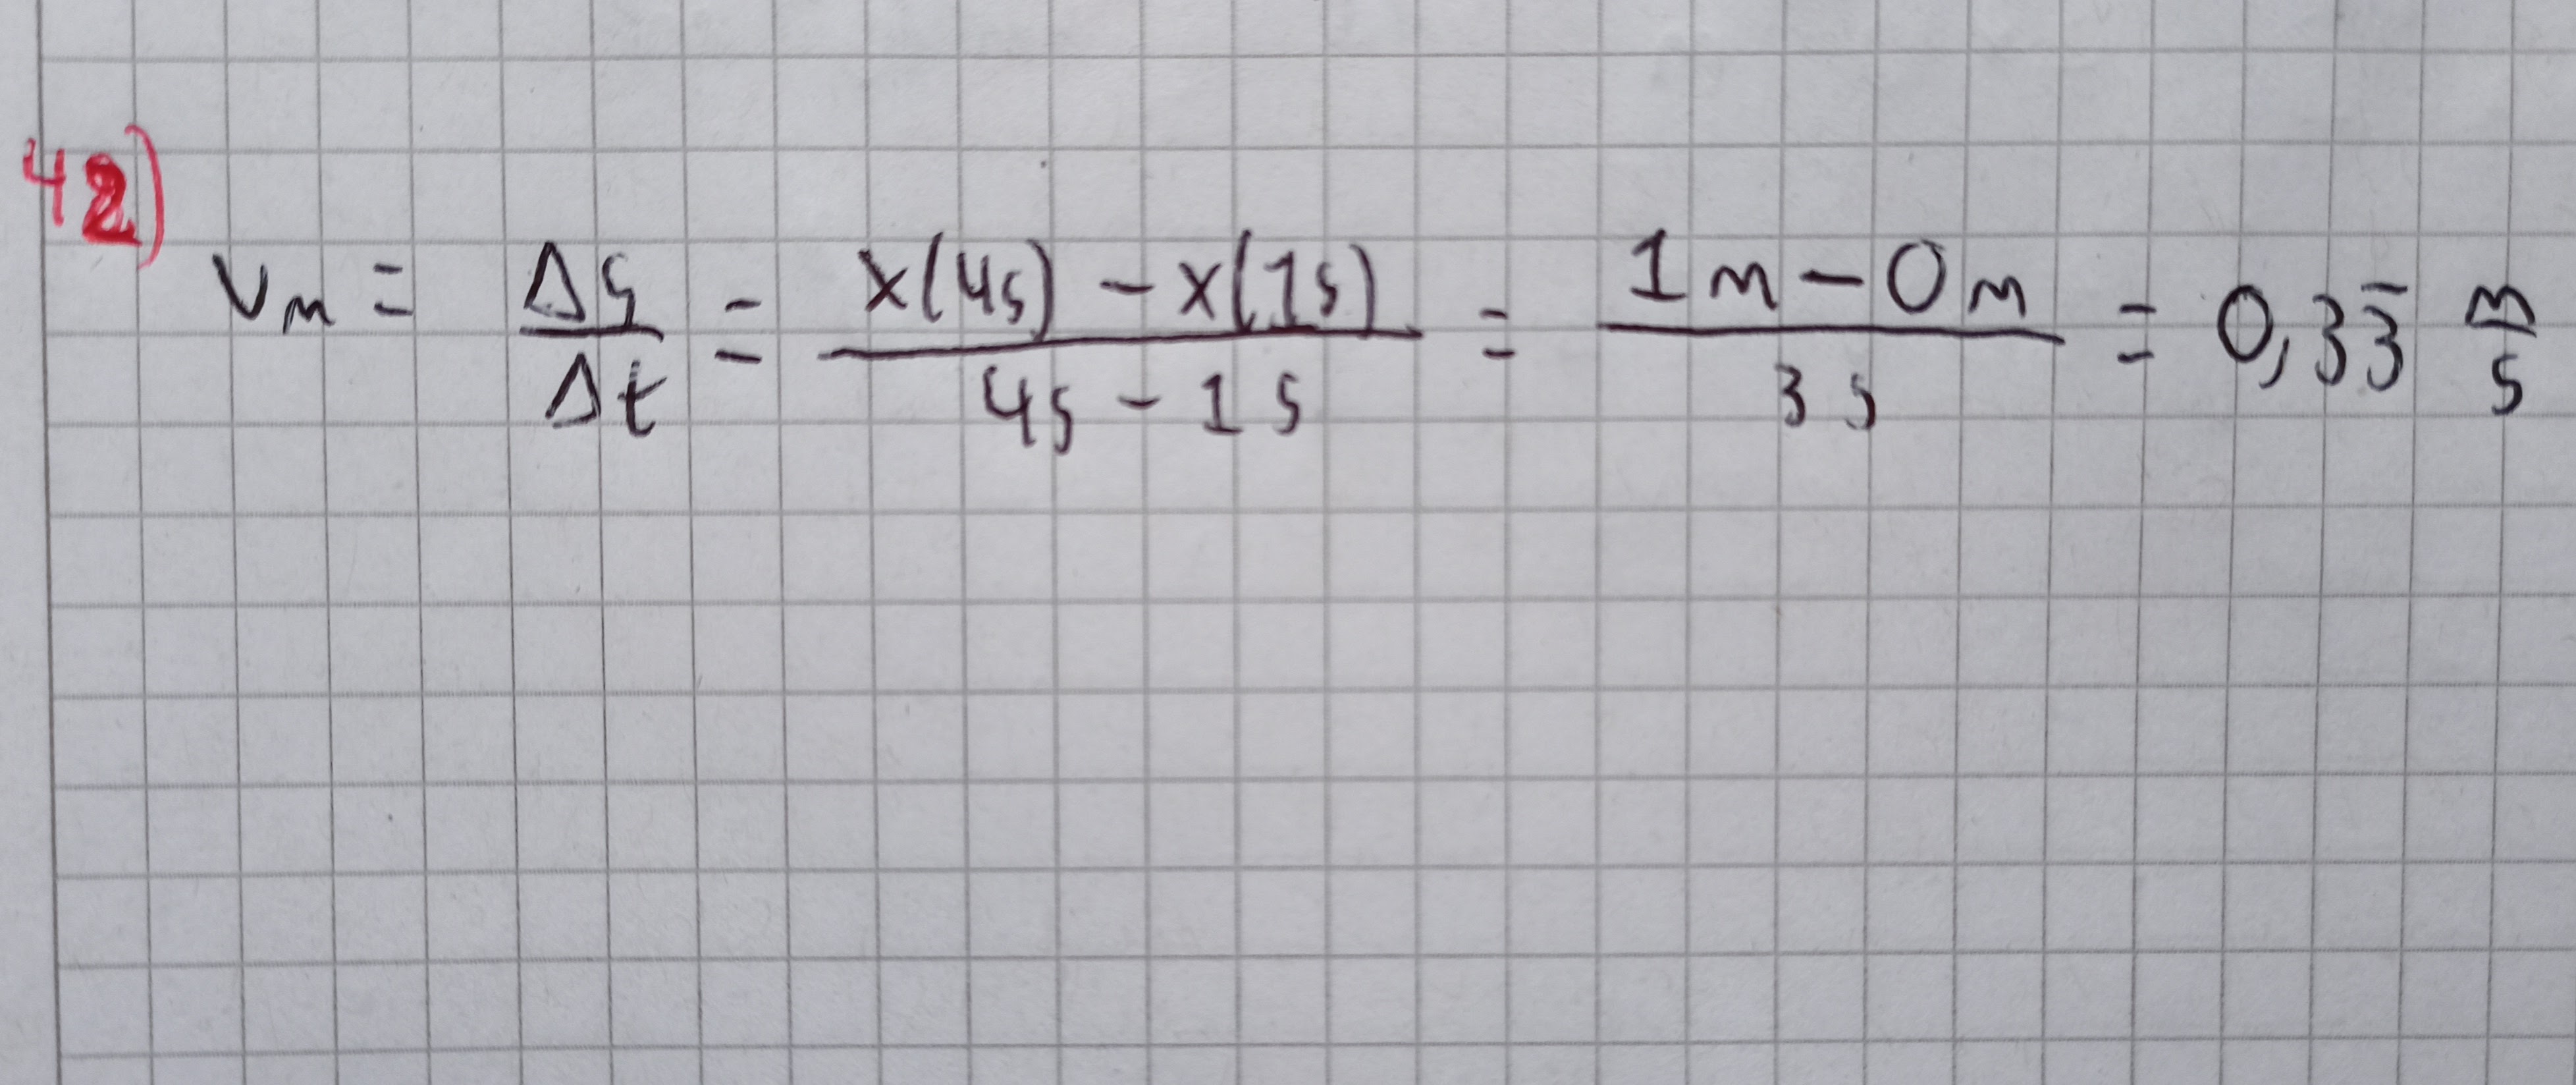 42)
v_m = Δs/Δt = (x(4s) − x(1s))/(4s − 1s) = (1m − 0m)/(3s) = 0,33̅ m/s